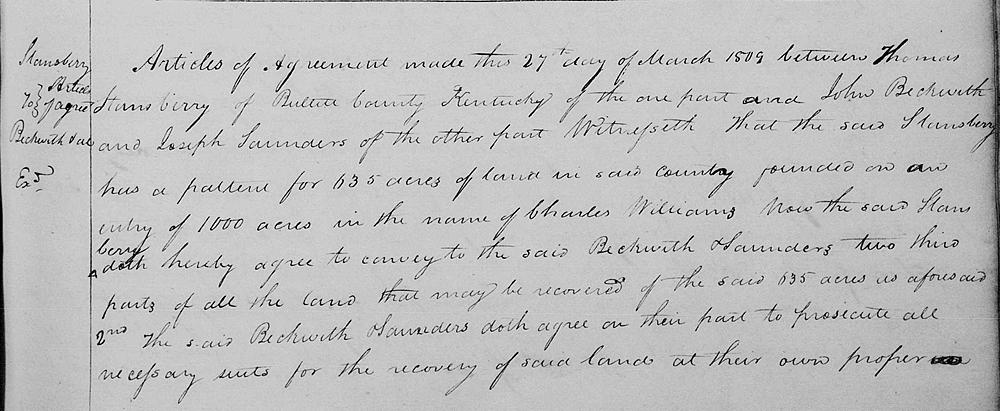 Stansberry
To } Articles
of agree
Beckwith & al
Exd
Articles of Agreement made this 27th day of March 1809 between Thomas
Stansberry of Bullitt County Kentucky of the one part and John Beckwith
and Joseph Saunders of the other part Witnesseth That the said Stansberry
has a pattent for 635 acres of land in said county founded on an
entry of 1000 acres in the name of Charles Williams Now the said Stans
berry
doth hereby agree to convey to the said Beckwith & Saunders two third
parts of all the land that may be recovered of the said 635 acres as aforesaid
2nd The said Beckwith & Saunders doth agree on their part to prosecute all
necessary suits for the recovery of said land at their own proper